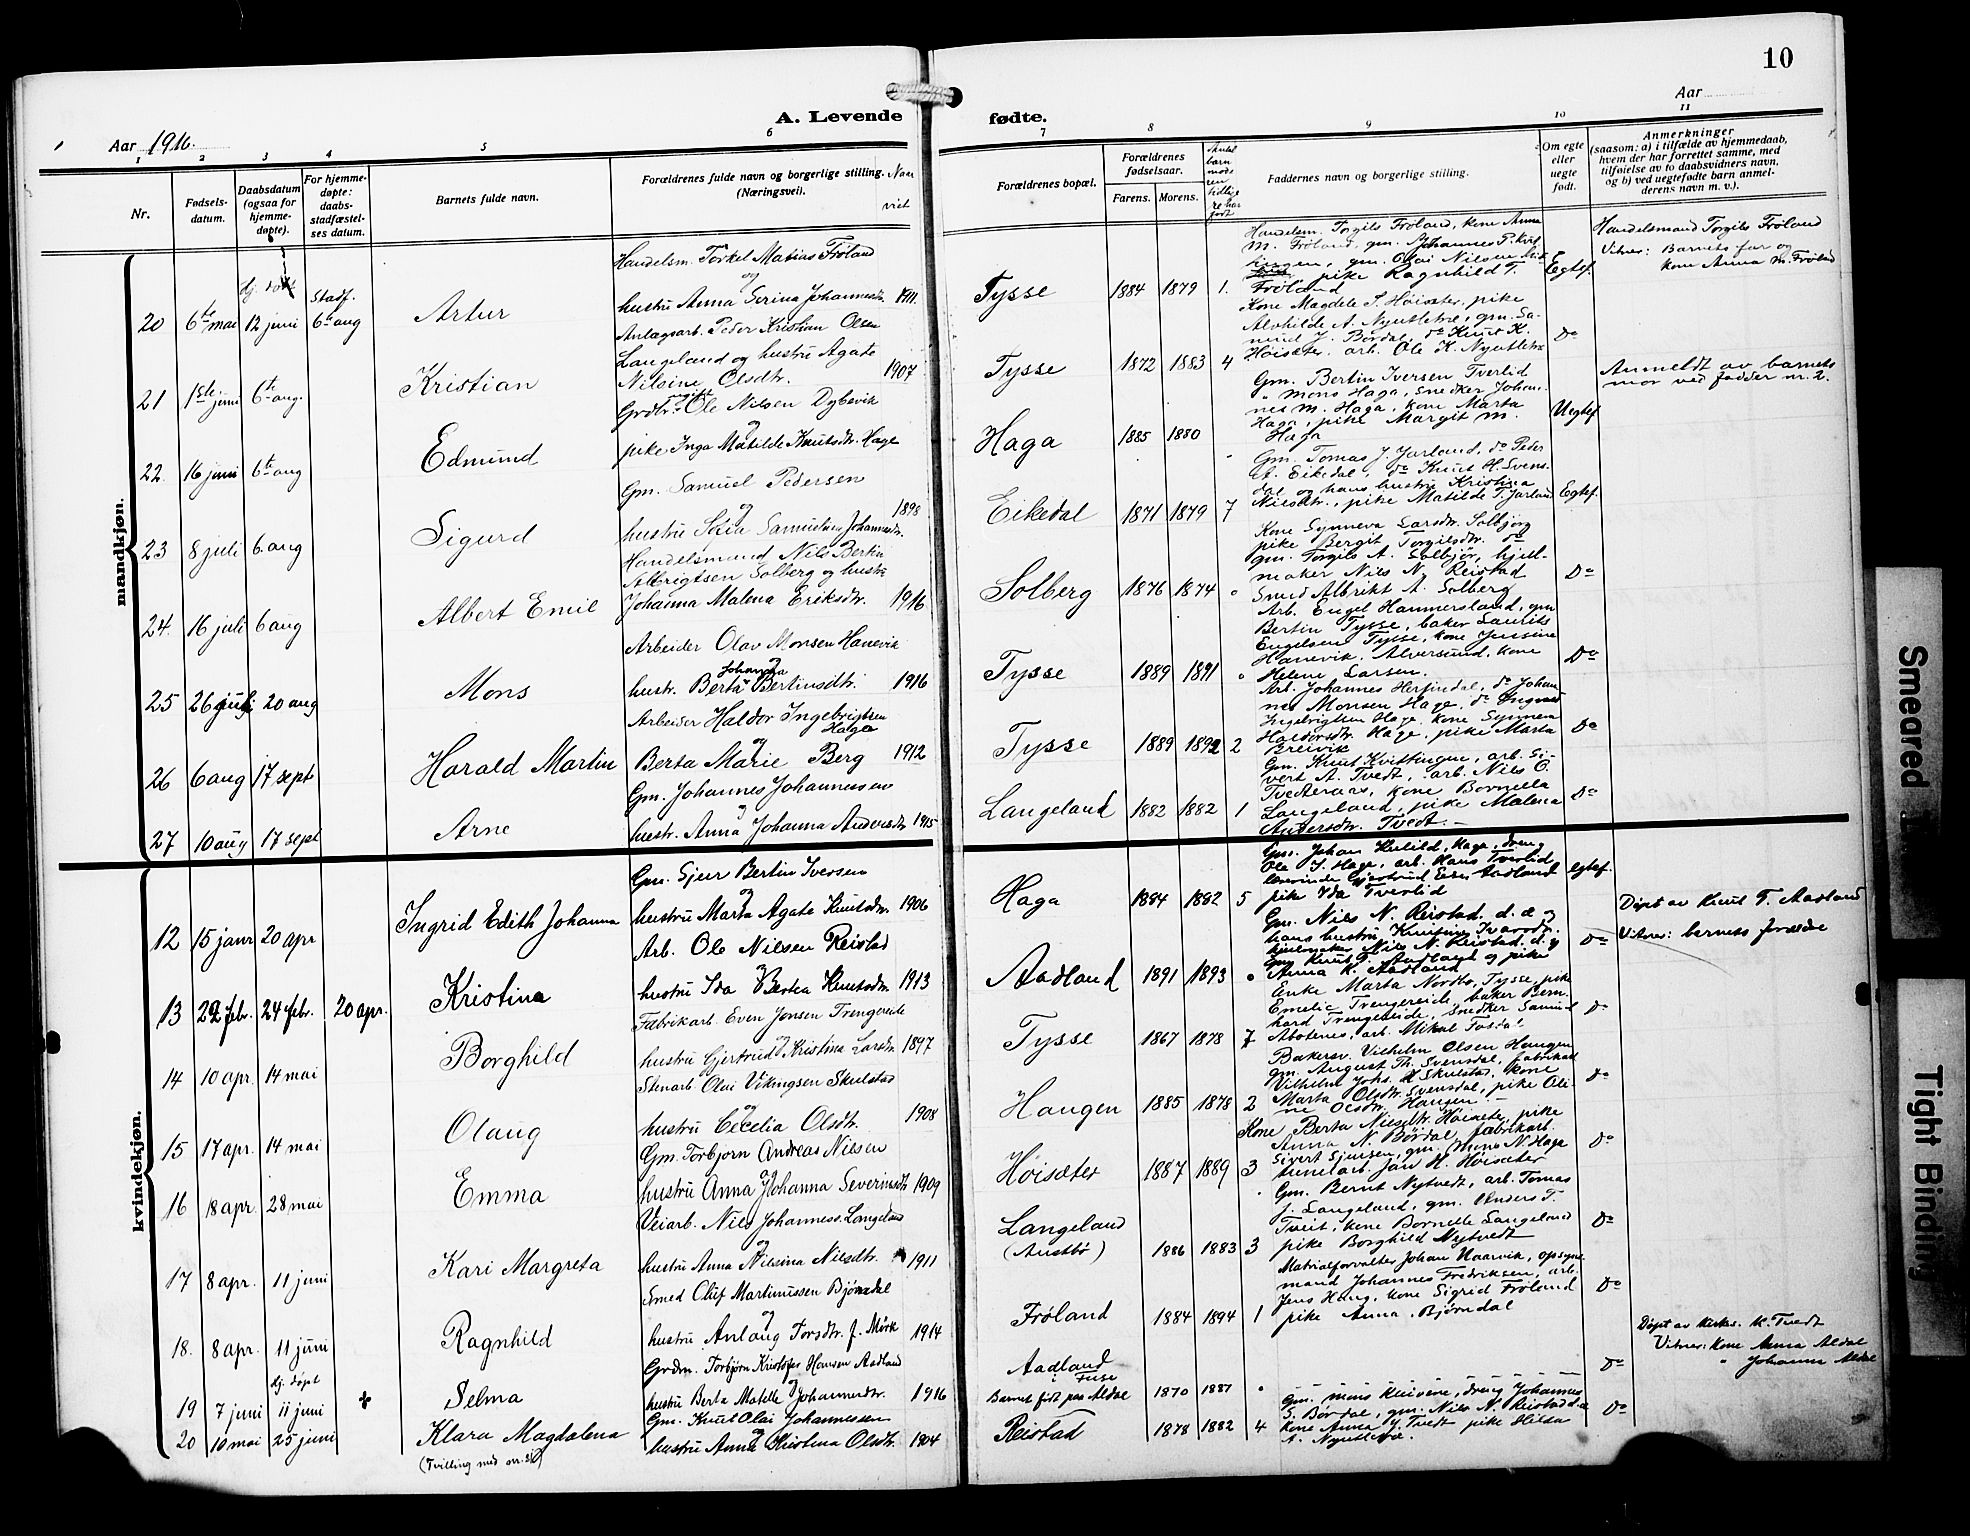 10
Aar 1916.
A. Levende
fødte.
Aar
1
2
3
4
5
6
7
8
9
10
11
Nr.
Fødsels-
datum.
Daabsdatum
(ogsaa for
hjemme-
døpte).
For hjemme-
døpte:
daabs-
stadfæstel-
ses datum.
Barnets fulde navn.
Forældrenes fulde navn og borgerlige stilling.
(Næringsvei).
Naar
viet
Forældrenes bopæl.
Forældrenes
fødselsaar.
Farens.
Morens.
Antal
barn
moderen
tidlige
re har
født
Faddernes navn og borgerlige stilling.
Om egte
eller
uegte
født.
Anmerkninger
(saasom: a) i tilfælde av hjemmedaab,
hvem der har forrettet samme, med
tilføielse av to daabsvidners navn,
og b) ved uegtefødte barn anmel-
derens navn m. v.).
mandkjøn.
20
6te mai
hj. døbt
12 juni
Stadf.
6te aug
Artur
Handelsm. Torkel Matias Frøland
og
hustru Anna Serina Johannesdtr. 1911
Tysse
1884
1879
1.
Handelsm. Torgils Frøland, kone Anna
M. Frøland, gm. Johannes T.
gm. Olai Nilsen
pike Ragnhild T.
Frøland
Egtef
Handelsmand Torgils Frøland
Vitner: Barnets far og
kone Anna M. Frøland
21
1ste juni
6te aug.
Kristian
Anlagsarb. Peder Kristian Olsen
Langeland og hustru Agate
Nilsine Olsdtr. 1907
Tysse
1872
1883
4
Kone Magdele S. Høisæter, pike
Alvhilde A. Nyutletræ, gm. Sa-
mund J. Børdal, do Knut K.
Høisæter, arb. Ole K. Nyutletræ
Do
22.
16 juni
6te aug
Edmund
Ole Nilsen Dybevik
og
pike Inga Matilde Knutsdtr. Hage
Haga
1885
1880
Gm. Bertin Iversen Tverlid
" Mons Haga, Snedker Johan-
nes M. Haga, kone Marta
Haga, pike Margit M.
Haga
Uegtef
Anmeldt av barnets
mor ved fadder nr. 2.
23
8 juli
6 aug
Sigurd
Gm. Samuel Pedersen
og
hustru Sella Johannesdtr. 1898
Eikedal
1871
1879
7
Gm. Tomas J. Jarland, do Peder
A. Eikedal, do Knut H. Svens-
dal og hans hustru Kristina
Nilsdtr., pike Matilde T. Jarland
Egtef.
24.
16 juli
6 aug
Albert Emil
Handelsmand Nils Bertin
Albrigtsen Solberg og hustru
Johanna Malena Eriksdtr. 1916
Solberg
1876
1874
"
Kone Synneva Larsdtr. Solbjørg
pike Bergit Torgilsdtr. do
gm. Torgils A. Solbjør, hjul-
maker Nils N. Reistad
Smed Albrikt A. Solberg
Do
25
26 juli
20 aug
Mons
Arbeider Olav Monsen Hanevik
og
hustr. Berta Johanna Bertinsdtr. 1916
Tysse
1889
1891
"
Arb. Engel Hammersland, gm
Bertin Tysse, baker Laurits
Engelsen Tysse, kone Jensine
Hanevik. Alversund, kone
Helene Larsen.
Do
26
6 aug
17 sept
Harald Martin
Arbeider Haldor Ingebrigtsen
Haga
og
Berta Marie Berg 1912
Tysse
1889
1892
2
Arb. Johannes Herfindal, do Johan-
nes Monsen Hage, do Ingvald
Ingebrigtsen Hage, kone Synneva
Haldorsdtr. Hage, pike Marta
Breivik
Do
27
10 aug
17 sept
Arne
Gm. Johannes Johannessen
og
hustr. Anna Johanna Andersdtr 1915
Langeland
1882
1882
1
Gm. Knut Kvittingen, arb. Si-
vert A. Tvedt, arb. Nils O.
Tvedteraas, kone Bornella
Langeland, pike Malena
Andersdtr. Tvedt. –
Do
kvindekjøn.
12
15 janr
20 apr
Ingrid Edith Johanna
Gm. Sjur Bertin Iversen
og
hustru Marta Agate Knutsdtr. 1906
Haga
1884
1882
5
Gm. Johan Kulild, Hage, dreng
Ole I. Hage, arb. Hans Tverlid
Gjertrud Aadland
pike Ida Tverlid
egtef.
13
22 febr.
24 febr.
20 apr.
Kristina
Arb. Ole Nilsen Reistad
og
hustru Ida Bertea Knutsdtr. 1913
Aadland
1891
1893
"
Gm. Nils N. Reistad d. æ og
hans hustru Knutine Ivarsdtr.
hjulmaker Nils N. Reistad d. y
gm Knut T. Aadland og pike
Anna K. Aadland
Do
Døpt av Knut T. Aadland
Vitner: barnets forældre
14
10 apr.
14 mai
Borghild
Fabrikarb. Even Jonsen Trengereide
og
hustru Gjertrud Kristina Larsdtr 1897
Tysse
1867
1878
7
Enke Marta Nordbø, Tysse, pike
Emelie Trengereide, baker Bern-
hard Trengereide, Snedker Samund
Aboternes, arb. Mikal Fosdal
Do
15
17 apr.
14 mai
Olaug
Stenarb. Olai Vikingsen Skulstad
og
hustru Cecelia Olsdtr. 1908
Haugen
1885
1878
2
Bakersv. Vilhelm Olsen Haugen
gm. August Th. Svensdal, fabrikarb
Vilhelm Johs. Skulstad, kone
Marta Olsdtr. Svensdal, pike Oli-
ne Olsdtr. Haugen. –
Do
16
18 apr.
28 mai
Emma
Gm. Torbjørn Andreas Nilsen
og
hustru Anna Johanna Severinsdtr 1909
Høisæter
1887
1889
3
Kone Berta Nilsdtr. Høisæter, pike
Anna N. Børdal, fabrikarb.
Sivert Sjursen, gm. Mons N. Hage
Jan H. Høisæter
Do
17
8 apr.
11 juni
Kari Margreta
Veiarb. Nils Johanness. Langeland
og
hustru Anna Nilsina Nilsdtr. 1911
Langeland
(Austbø)
1886
1883
3
Gm. Bernt Nytvedt, arb. Tomas
J. Langeland, gm. Anders T.
Tveit, kone Bornelle Langeland
pike Borghild Nytvedt
Do
18.
8 apr.
11 juni
Ragnhild
Smed Oluf Martinussen Bjørndal
og
hustru Anlaug Torsdtr. f. Mørk 1914
Frøland
1884
1894
1
Matrialforvalter Johan Naarvik, opsyns-
mand Johannes Fredriksen, arb.
Jens Haug, kone Sigrid Frøland
pike Anna Bjørndal
Do
19
7 juni
hj. døpt
11 juni
+
Selma
Grdm. Torbjørn Kristofer Hansen Aadland
og
hustru Berta Matelle Johannesdtr. 1916
Aadland
Fuse
Barnet født paa Aldal
1870
1887
"
– – – – – –
Do
Døpt av kirkes. K. Tvedt
Vitner: Kone Anna Aldal
" Johanna Aldal
20
10 mai
25 juni
Klara Magdalena
(Tvilling med nr. 21)
Gm. Knut Olai Johannessen
og
hustru Anna Kristina Olsdtr. 1904
Reistad
1878
1882
4
Gm. Mons dreng Johannes
S. Børdal, gm. Nils N. Reistad d.æ
kone Anna Y. Tvedt pike Hilda
A. Nyutletræ.
Do
Smeared
Tight Binding